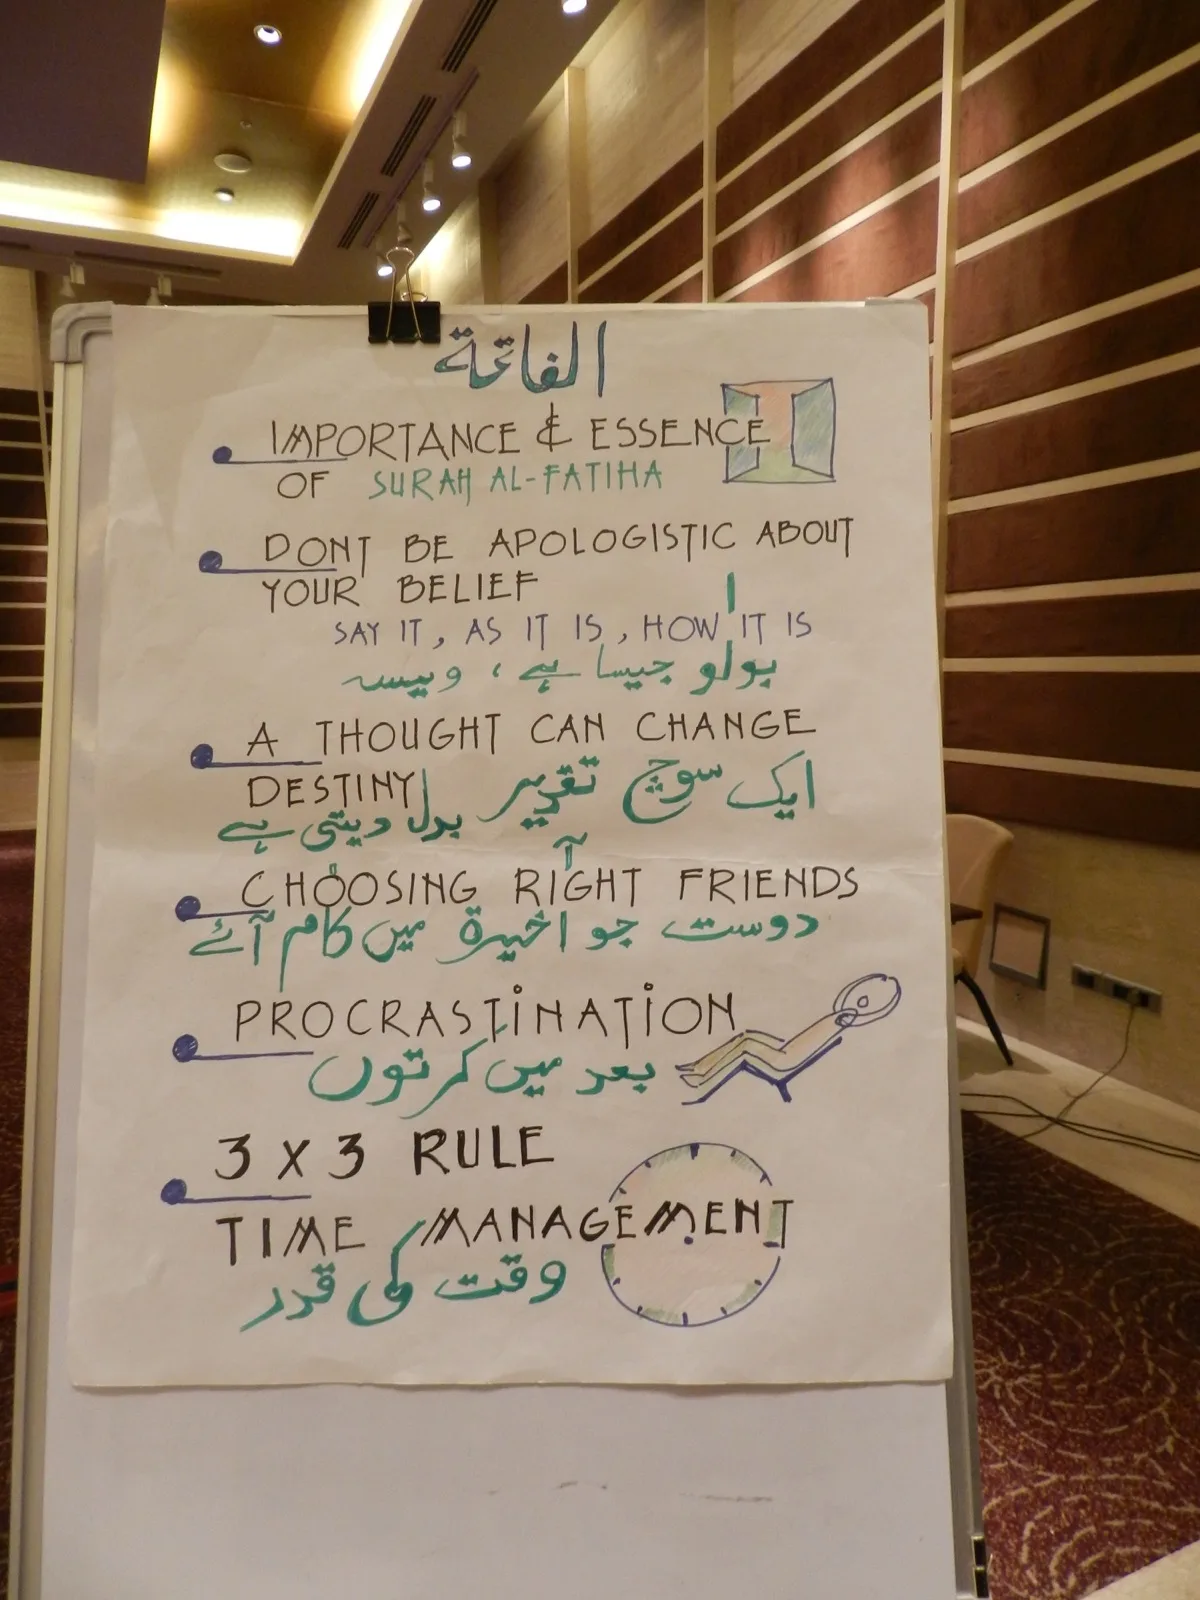 الفاتحة
IMPORTANCE & ESSENCE
OF SURAH AL-FATIHA
DONT BE APOLOGISTIC ABOUT
YOUR BELIEF
SAY IT, AS IT IS, HOW IT IS
بولو جیسا ہے، ویسہ
A THOUGHT CAN CHANGE
DESTINY
ایک سوچ تقدیر
بدل دیتی ہے
CHOOSING RIGHT FRIENDS
دوست جو اخیرۃ میں کام آئے
PROCRASTINATION
بعد میں کرتوں
3 X 3 RULE
TIME MANAGEMENT
وقت کی قدر